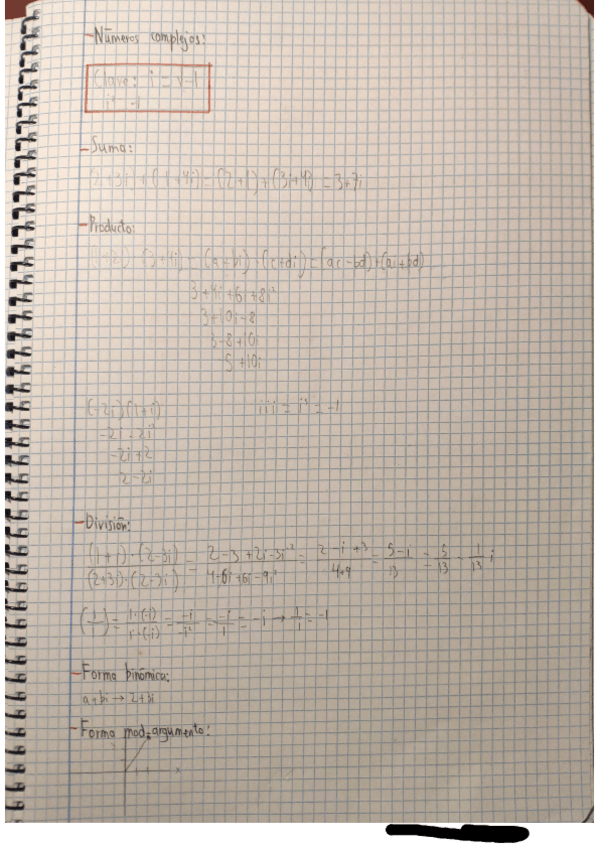 - Números complejos:
Clave: i = √-1
i² = -1
- Suma:
(2+3i)+(1+4i)=(2+1)+(3i+4i) = 3+7i
- Producto:
(3+4i) = (a+bi)·(c+di)=(ac-bd)+(a +bd)
3+4i+6i+8i²
3+10i-8
3-8+10i
-5+10i
(-2i)(1+i)
-2i-2i²
-2i+2
2-2i
= -1
- División:
(1+i)·(2-3i) / (2+3i)·(2-3i) = 2-3i+2i-3i² / 4-6i+6i-9i² = 2-i+3 / 4+9 = 5-i / 13 = 5/13 - 1/13 i
(1/i) = 1·(-i) / i·(-i) = -i / -i² = -i / 1 = -i → 1/i = -i
- Forma binómica:
a+bi → 2+3i
- Forma mod-argumento: